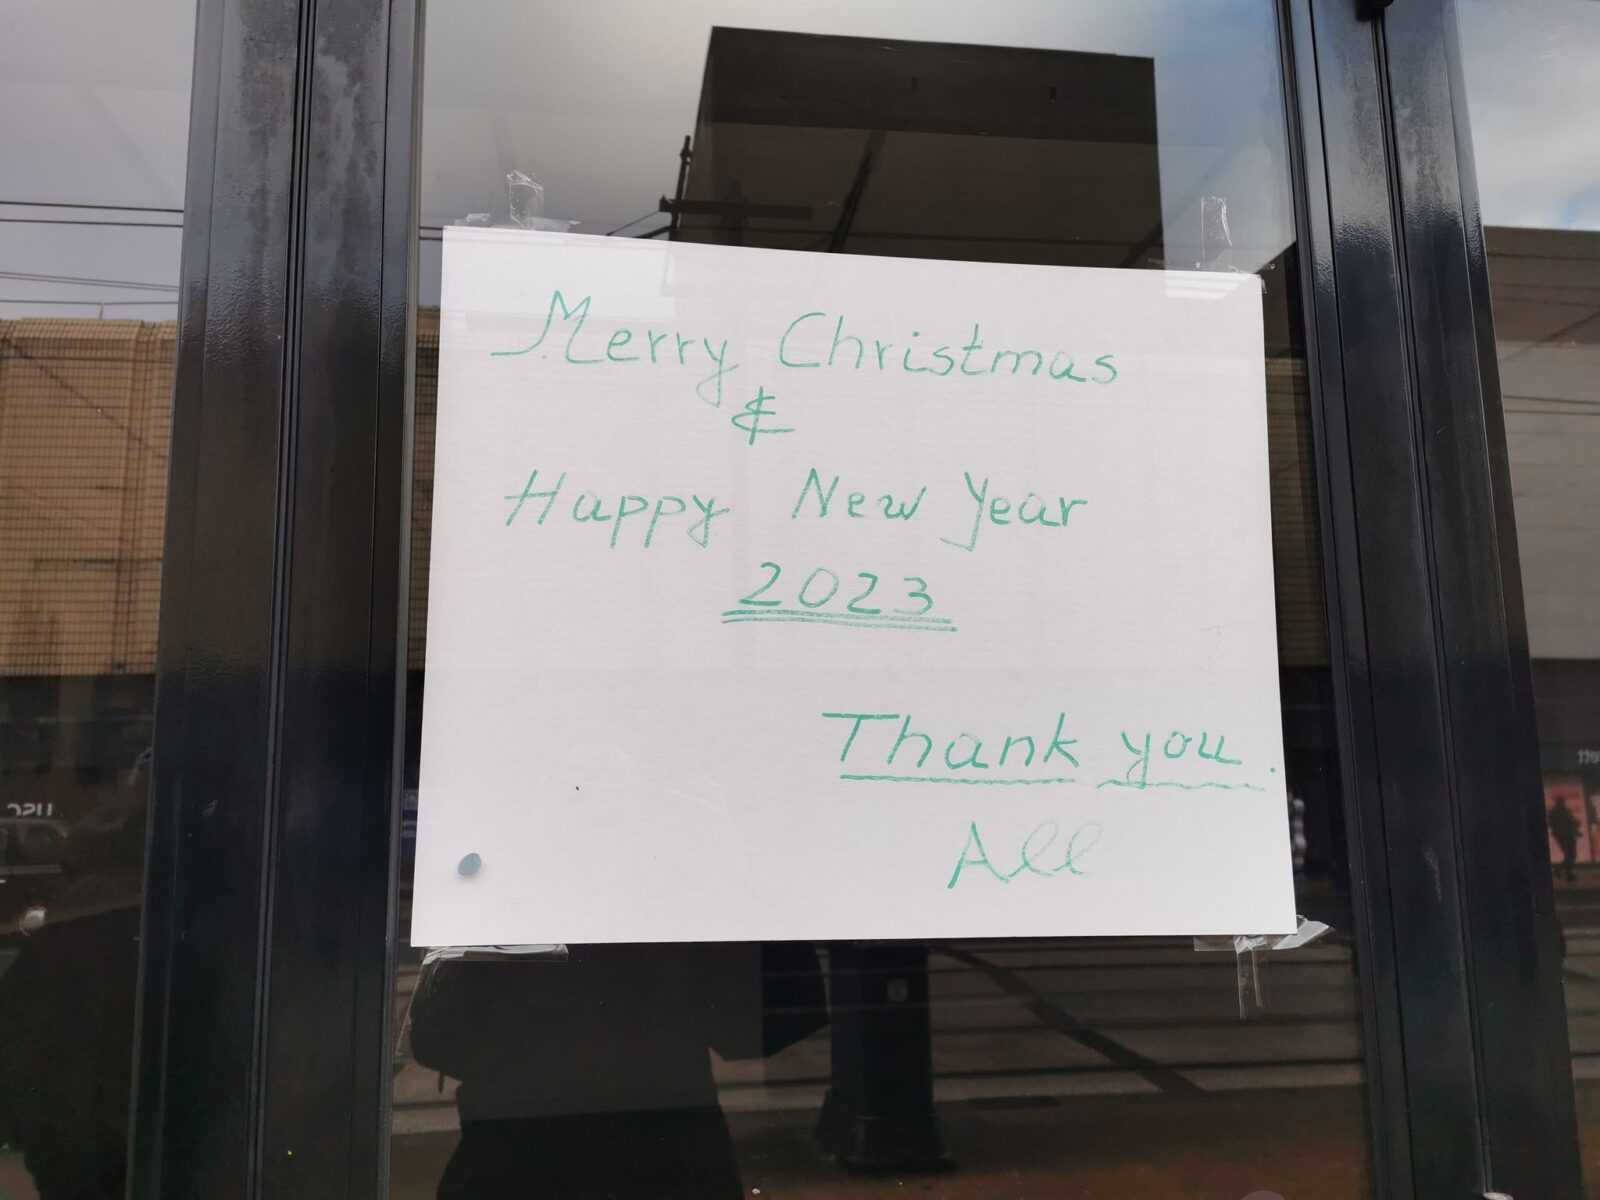 Merry Christmas
&
Happy New Year
2023
Thank you.
All